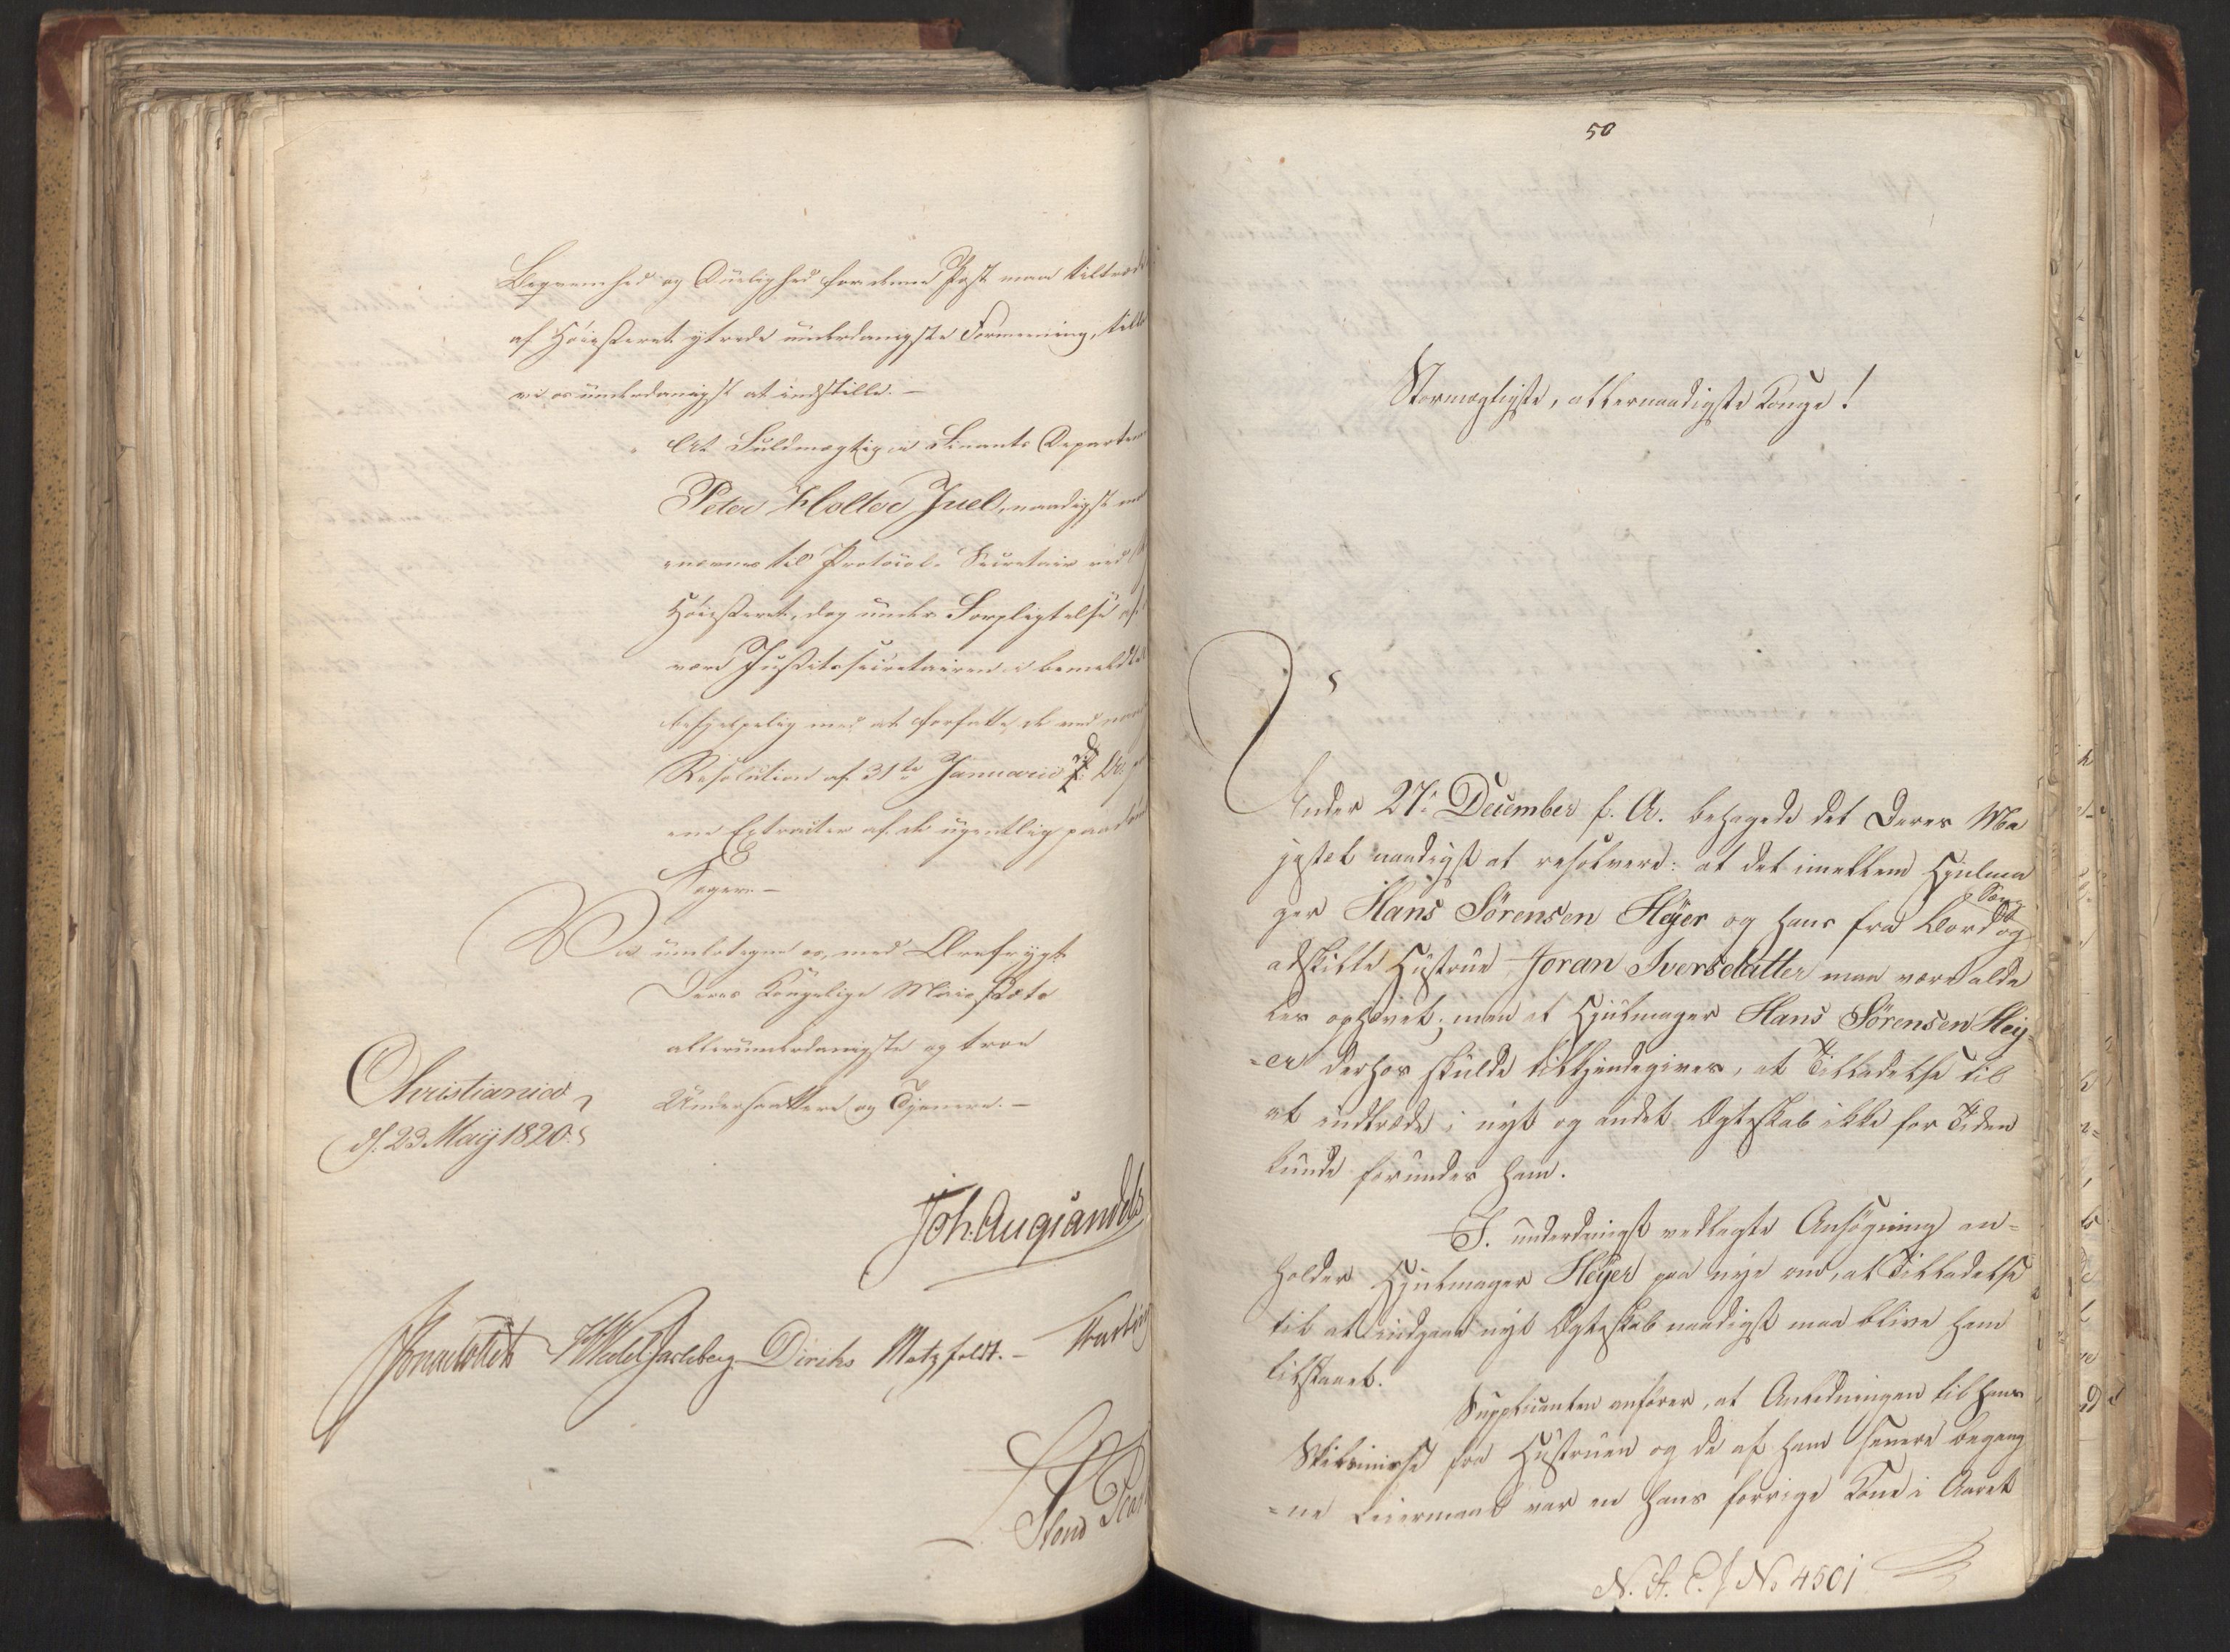 Beqvemhed og Duelighed for denne Post maa tiltræde
af Höiesteret ytrede underdanigste Formening, till
vi os underdanigst at indstille. —
"At Fuldmægtig i Finants Departem
Peter Holter Juel, naadigst
nævnes til Protocol-Secretair ved
Höiesteret, dog under Forpligtelse af
være Justitssecretairen i bemeldte
behjelpelig med at forfatte de ved
Resolution af 31te Januarii
ne Extracter af de ugentlig paadömt
Sager. —
Vi undertegne os, med Ærefrygt
Deres Kongelige Majestæts
allerunderdanigste og troe
Undersaatter og Tjenere. —
Christiania
d. 23 Maij 1820.
Joh. Aug: Sandels
Sommerhielm HWedelJarlsberg Diriks Motzfeldt. —
50
Stormægtigste, allernaadigste Konge!
Under 27 December f. A. behagede det Deres Ma
jestæt naadigst at resolvere: at det imellem Hjulma
ger Hans Sörensen Heÿer og hans fra Bord og Seng
adskilte Hustrue Joran Iversdatter maa være alde
les ophævet; men at Hjulmager Hans Sörensen Heij=
=er derhos skulde tilkjendegives, at Tilladelse til
at indtræde i nyt og andet Ægteskab ikke for Tiden
kunde forundes ham.
I. underdanigst vedlagte Ansögning an=
holder Hjulmager Heÿer paa nye om, at Tilladelse
til at indgaae nyt Ægteskab naadigst maa blive ham
tilstaaet.
Supplicanten anförer, at Anledningen til hans
Skilsmisse fra Hustruen og de af ham senere begang
=ne Leiermaal var en hans forrige Kone i Aaret
No 4501